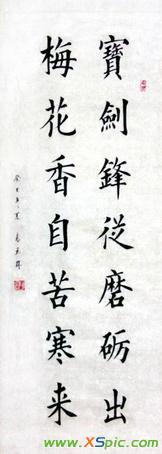 寶劍鋒從磨砺出
梅花香自苦寒来
www.XSpic.com